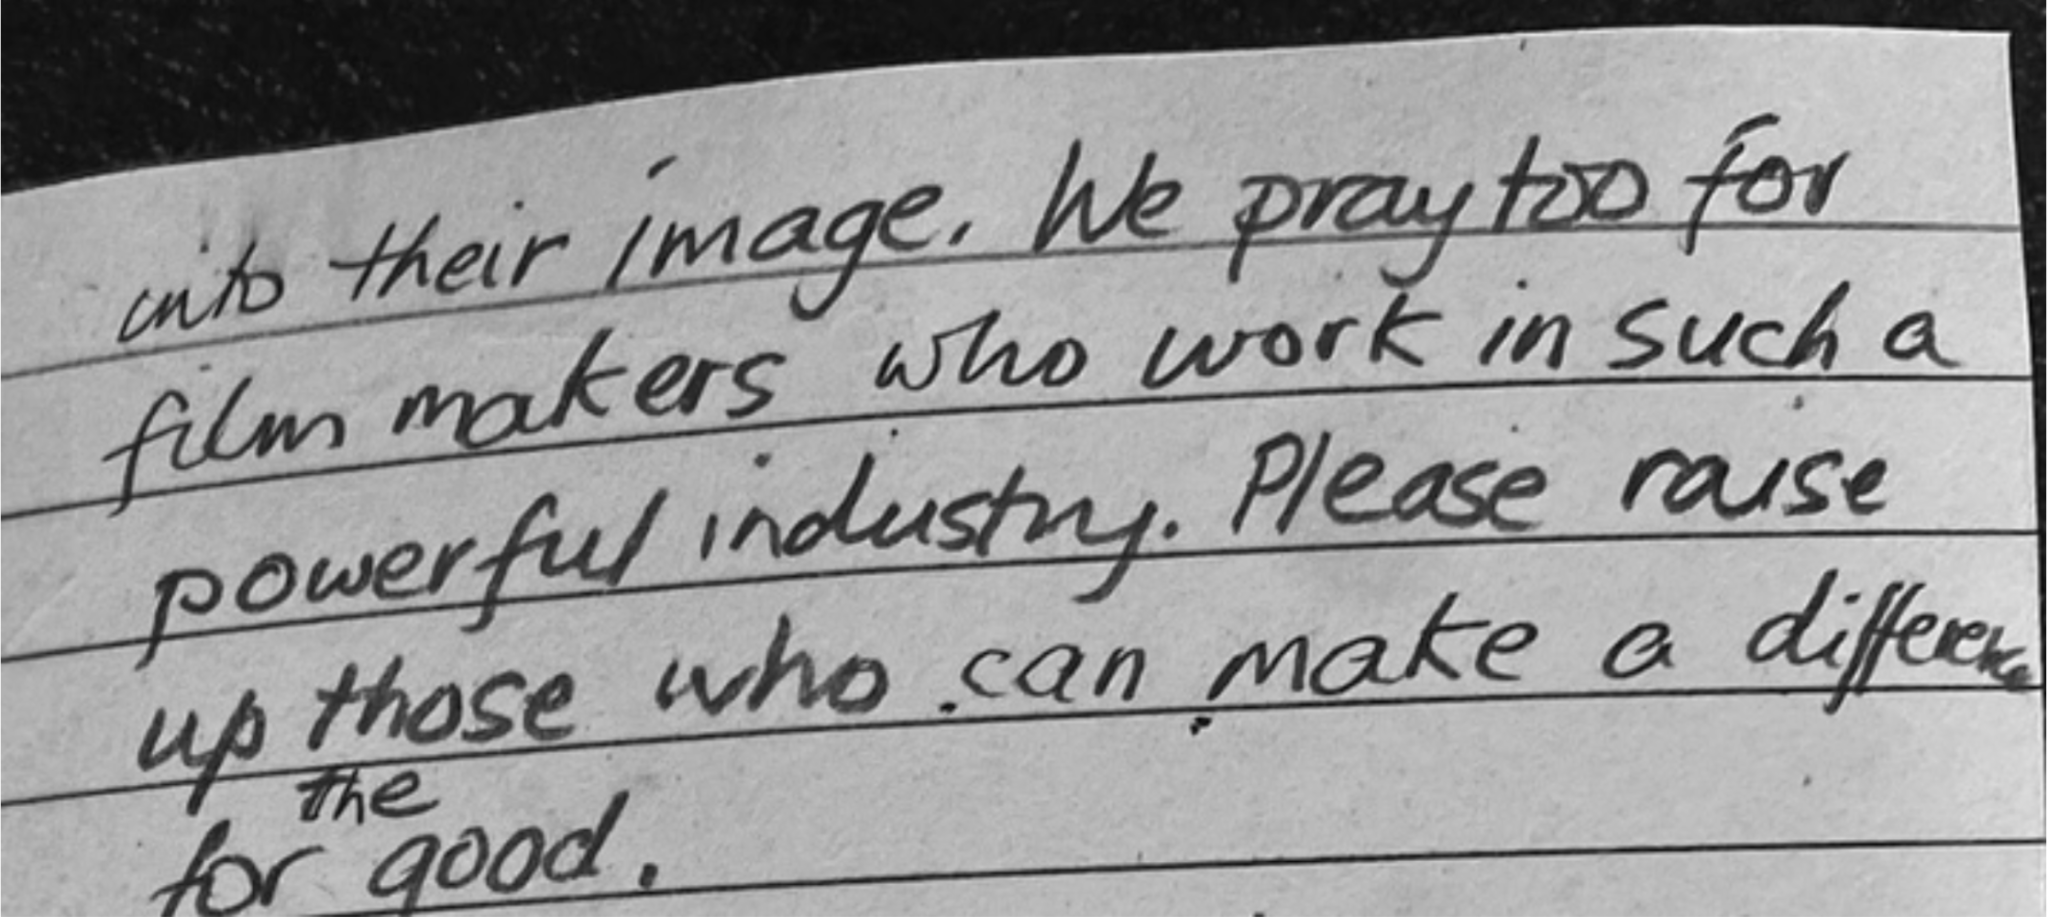 into their image. We pray too for
film makers who work in such a
powerful industry. Please raise
up those who can make a difference
the
for good.